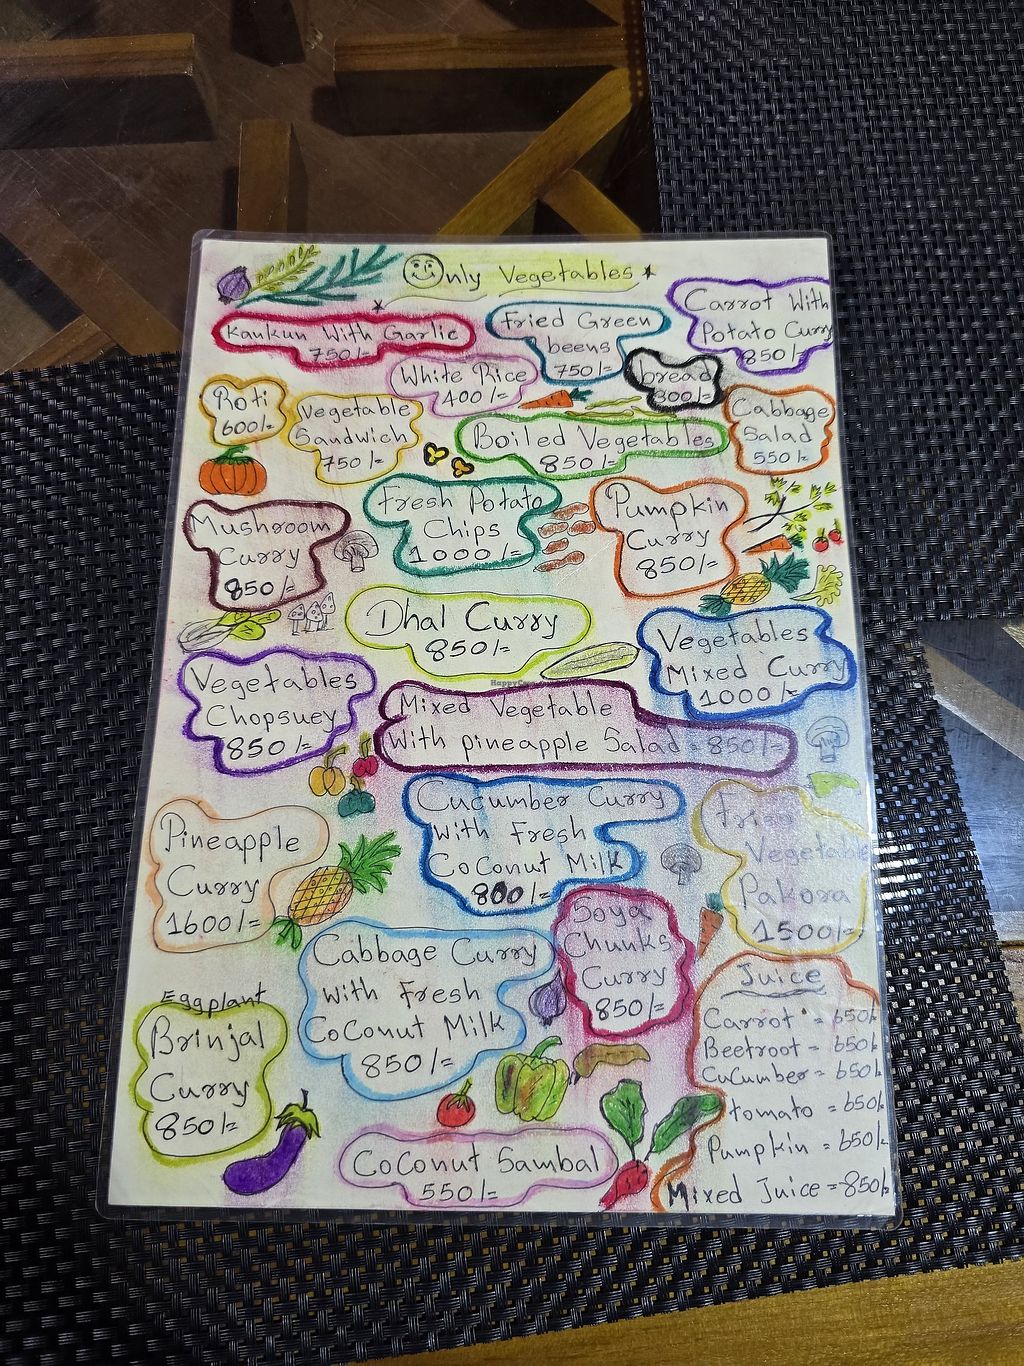 Only Vegetables
Kankun With Garlic
750/=
Fried Green
beens
750/=
Carrot With
Potato Curry
850/=
White Rice
400/=
bread
300/=
Roti
600/=
Vegetable
Sandwich
750/=
Boiled Vegetables
850/=
Cabbage
Salad
550/=
Mushroom
Curry
850/=
Fresh Potato
Chips
1000/=
Pumpkin
Curry
850/=
Dhal Curry
850/=
Vegetables
Mixed Curry
1000/=
Vegetables
Chopsuey
850/=
Mixed Vegetable
With pineapple Salad = 850/=
Pineapple
Curry
1600/=
Cucumber Curry
With Fresh
CoConut Milk
800/=
Vegetable
Pakora
1500/=
Soya
Chunks
Curry
850/=
Cabbage Curry
With Fresh
CoConut Milk
850/=
Eggplant
Brinjal
Curry
850/=
CoConut Sambal
550/=
Juice
Carrot = 650/=
Beetroot = 650/=
CuCumber = 650/=
tomato = 650/=
Pumpkin = 650/=
Mixed Juice = 850/=